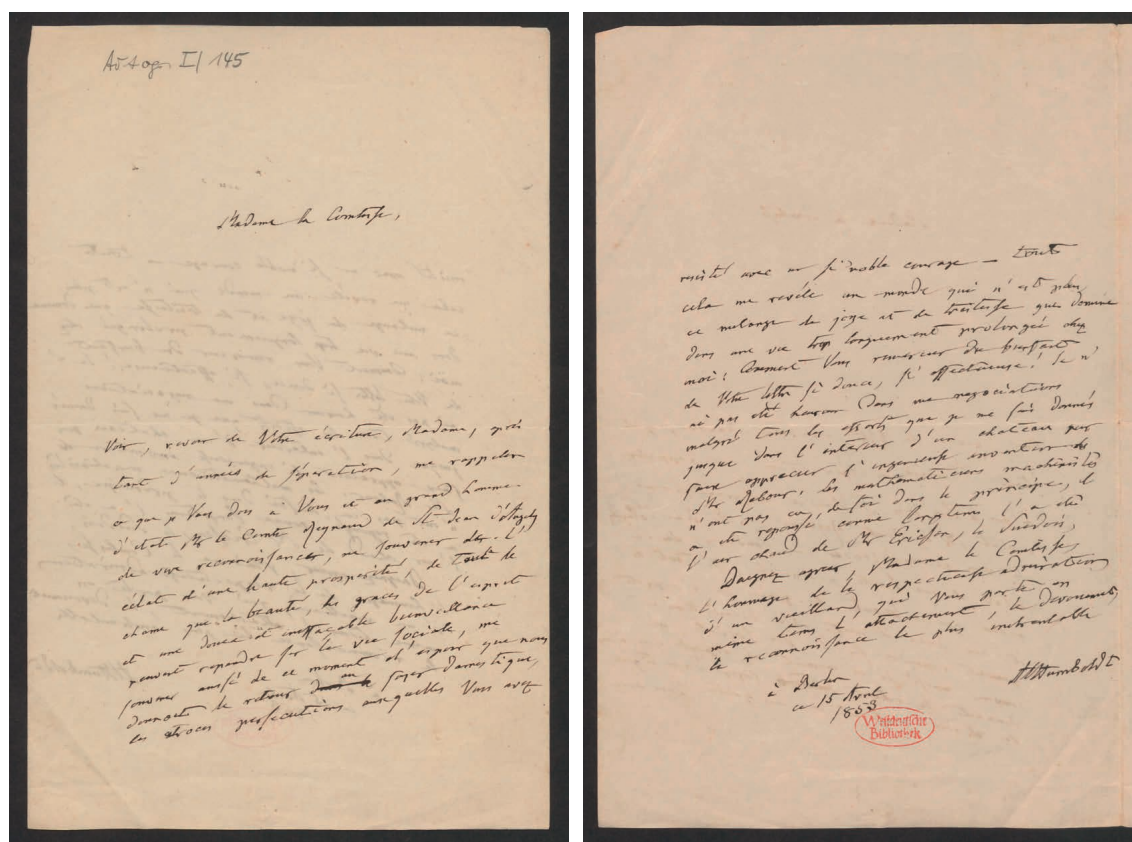 Autogr. I/145
Madame la Comtesse,
Voir, revoir de Votre écriture, Madame, après
tant d'années de séparation, me rappeler
ce que je Vous dois à Vous et au grand homme-
d'etat Mr le Comte Regnaud de St Jean d'Angely
de vive reconnoissance, me souvenir de l'
éclat d'une haute prospérité, de tout le
charme que la beauté, les graces de l'esprit
et une douce et ineffaçable bienveillance
peuvent repandre sur la vie sociale, me
souvenir aussi de ce moment d'espoir que nous
donnoit le retour au foyer domestique,
les atroces persécutions auxquelles Vous avez
resisté avec un si noble courage — tout
cela me revéle un monde qui n'est plus,
ce melange de joye et de tristesse qui domine
dans une vie trop longuement prolongée chez
moi! Comment Vous remercier du bienfait
de Votre lettre si douce, si affectueuse! Je n'
ai pas été heureux dans mes negociations
malgré tous les efforts que je me suis donnés
jusque dans l'interieur d'un chateau pour
faire apprecier l'ingenieuse invention de
Mr Rebour, les mathematiciens machinistes
n'ont pas eu de foi dans le principe, il
a été repoussé comme longtems l'a été
l'air chaud de Mr Ericson, le Suedois,
Daignez agreer, Madame la Comtesse,
l'hommage de la respectueuse admiration
d'un vieillard, qui Vous porte en
même tems l'attachement, le devouement,
la reconnoissance la plus inebranlable
AlHumboldt
à Berlin
ce 15 Avril
1853
Weidnerische
Bibliothek